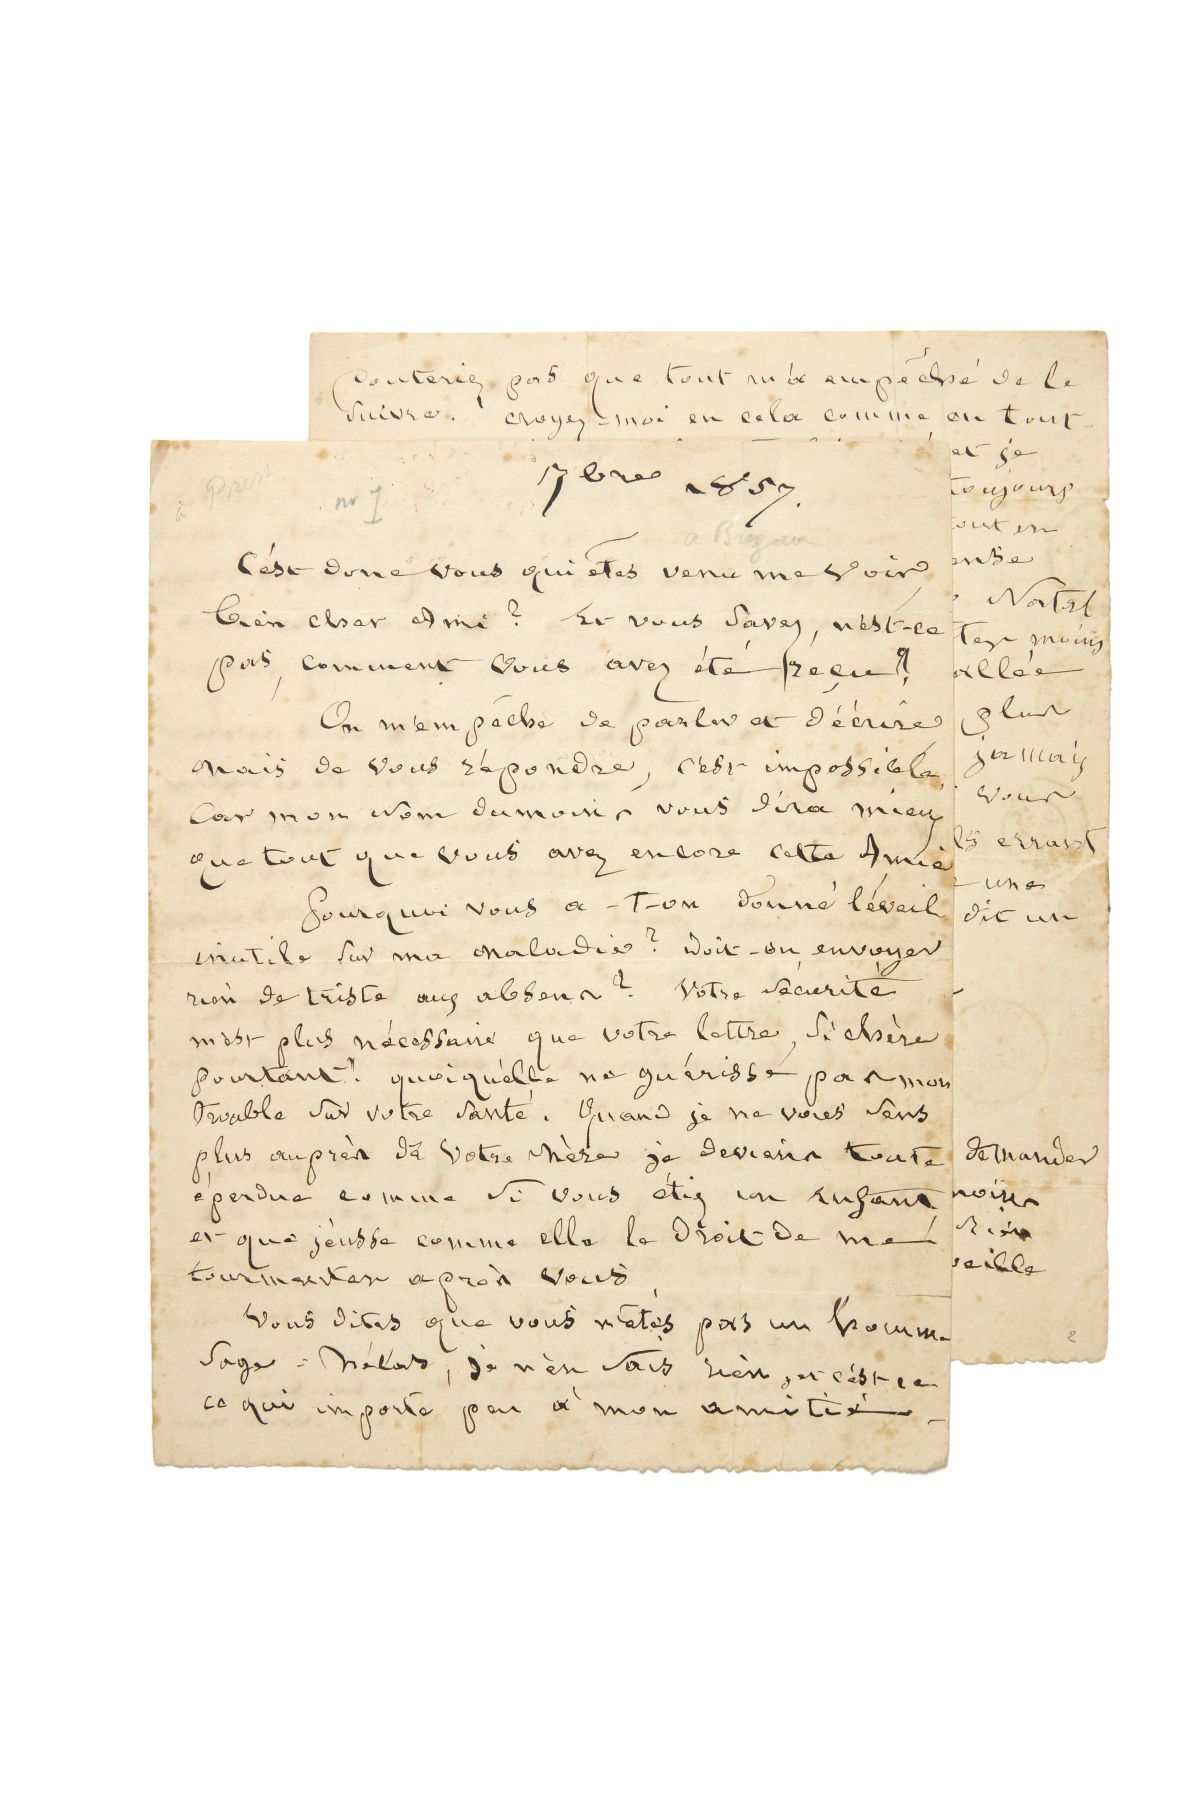 douteriez pas que tout m'a empêché de le
suivre. croyez-moi en cela comme en tout
et je
toujours
tout en
ense
Notre
moins
allée
plus
jamais
vous
errant
une
dit un
demander
rien
veille
2
à Brest
no 1
17bre 1857.
C'ést donc vous qui êtes venu me voir
bien cher Ami? Et vous savez, n'ést-ce
pas, comment vous avez été réçu?
On m'empêche de parler et d'écrire
mais de vous répondre, c'est impossible,
Car mon Nom dumoins vous dira mieux
que tout que vous avez encore cette Amie
Pourquoi vous a-t-on donné l'éveil
inutile sur ma maladie? Doit-on envoyer
rien de triste aux absens? Votre sécurité
m'est plus nécessaire que votre lettre, si chère
pourtant! quoiqu'élle ne guérisse pas mon
trouble sur votre santé. Quand je ne vous sens
plus auprès de votre Mère je deviens toute
éperdue comme si vous étiez un Enfant
et que j'eusse comme elle le droit de me
tourmenter après vous
Vous dites que vous n'etes pas un homme
sage - hélas, je n'en sais rien, et c'ést ce
ce qui importe peu à mon amitié -